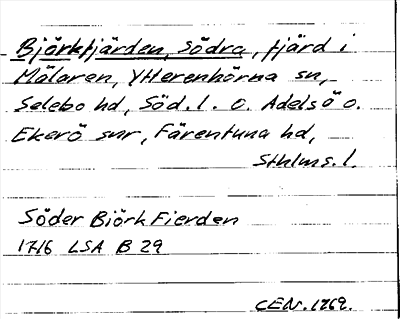 Björkfjärden, Södra, fjärd i
Mälaren, Ytterenhörna sn,
Selebo hd, Söd.l. o. Adelsö o.
Ekerö snr, Färentuna hd,
Sthlms.l.
Söder Biörk Fierden
1716 LSA B 29
CEN. 1969.